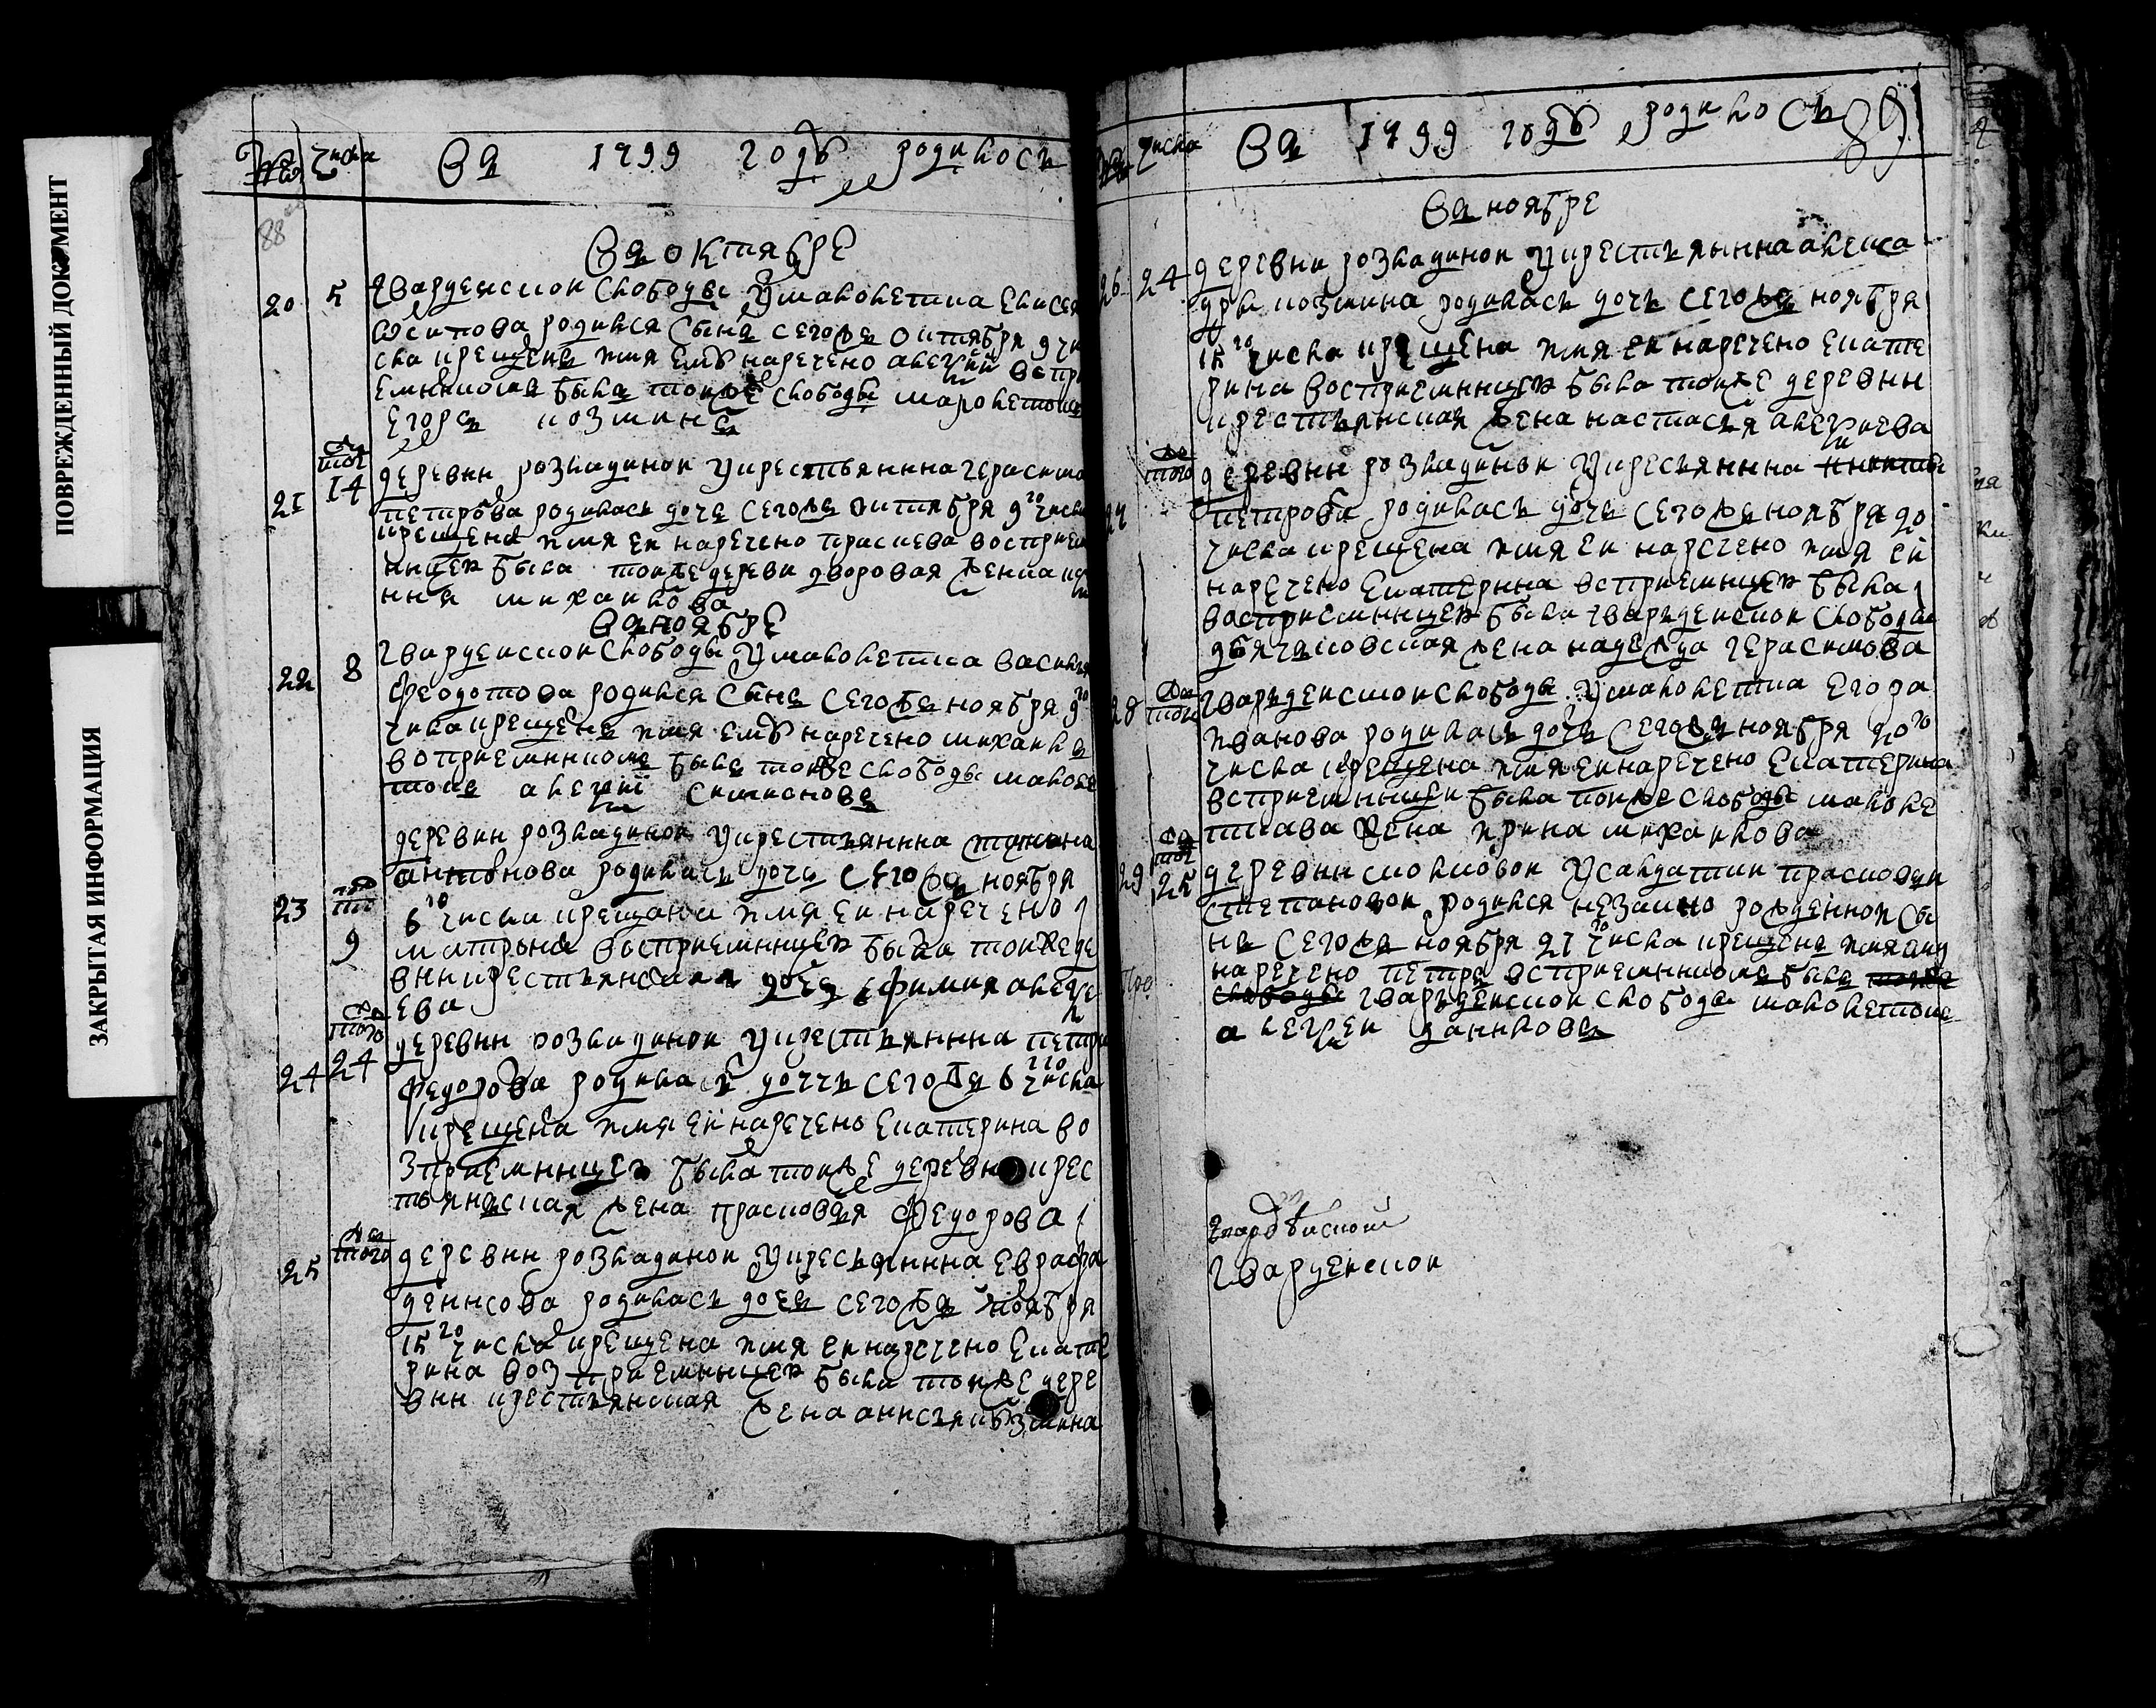 ПОВРЕЖДЕННЫЙ ДОКУМЕНТ
ЗАКРЫТАЯ ИНФОРМАЦИЯ
числа Въ 1799 годѣ родилось
88
Въ октябре
20 5 Гвардейской слободы у малолетка Елисея
Осипова родился сынъ сегожъ октября 9 чи
сла крещенъ имя ему наречено алеѯѣй воспри
емникомъ былъ тойже слободы малолетокъ
Егоръ козминъ
21 14 деревни розладиной у крестьянина герасима
петрова родилась дочь сегожъ октября 9го числа
крещена имя ей наречено прасковя восприем
ницей была тойже деревни дворовая женка
михайлова
Въ ноябре
22 8 Гвардейской слободы у малолетка василья
Феодотова родился сынъ сегожъ ноября 9го
числа крещенъ имя ему наречено михайлъ
восприемникомъ былъ тойже слободы малоле
токъ алеѯѣй симионовъ
деревни розладиной у крестьянина
антонова родилась дочь сегожъ ноября
23 того 9 6го числа крещена имя ей наречено
матрона восприемницей была тойже де
вни крестьянская дочь ефимия алеѯѣ
ева
24 того 24 деревни розладиной у крестьянина петра
Федорова родилась дочь сегожъ 6го числа
крещена имя ей наречено Екатерина во
зприемницей была тойже деревни крес
тьянская жена прасковья Федорова
25 того деревни розладиной у кресьянина еврафа
денисова родилась дочь сегожъ ноября
15го числа крещена имя ей наречено Екате
рина возприемницей была тойже дере
вни крестьянская жена анисья кузмина
числа Въ 1799 годѣ родилось 89
Въ ноябре
26 24 деревни розладиной у крестьянина алекса
дры козмина родилась дочь сегожъ ноября
15го числа крещена имя ей наречено Екате
рина восприемницей была тойже деревни
крестьянская жена настасья алеѯѣева
27 того деревни розладиной у кресьянина никиты
петрова родилась дочь сегожъ ноября 20
числа крещена имя ей наречено имя ей
наречено Екатерина восприемницей была
восприемницей была гваръдейской слободы
дьячковская жена надежда герасимова
28 того Гваръдейской слободы у малолетка Егора
иванова родилась дочь сегожъ ноября 20го
числа крещена имя ей наречено Екатерина
восприемницей была тойже слободы малоле
ткава жена ирина михайлова
29 25 деревни соколовой у салдатки прасковьи
степановой родился незакно рожденной сы
нъ сегожъ ноября 27го числа крещенъ имя
наречено петръ восприемникомъ былъ тойже
слободы гваръдейской слободы малолетокъ
алеѯѣй даниловъ
Гвардейской